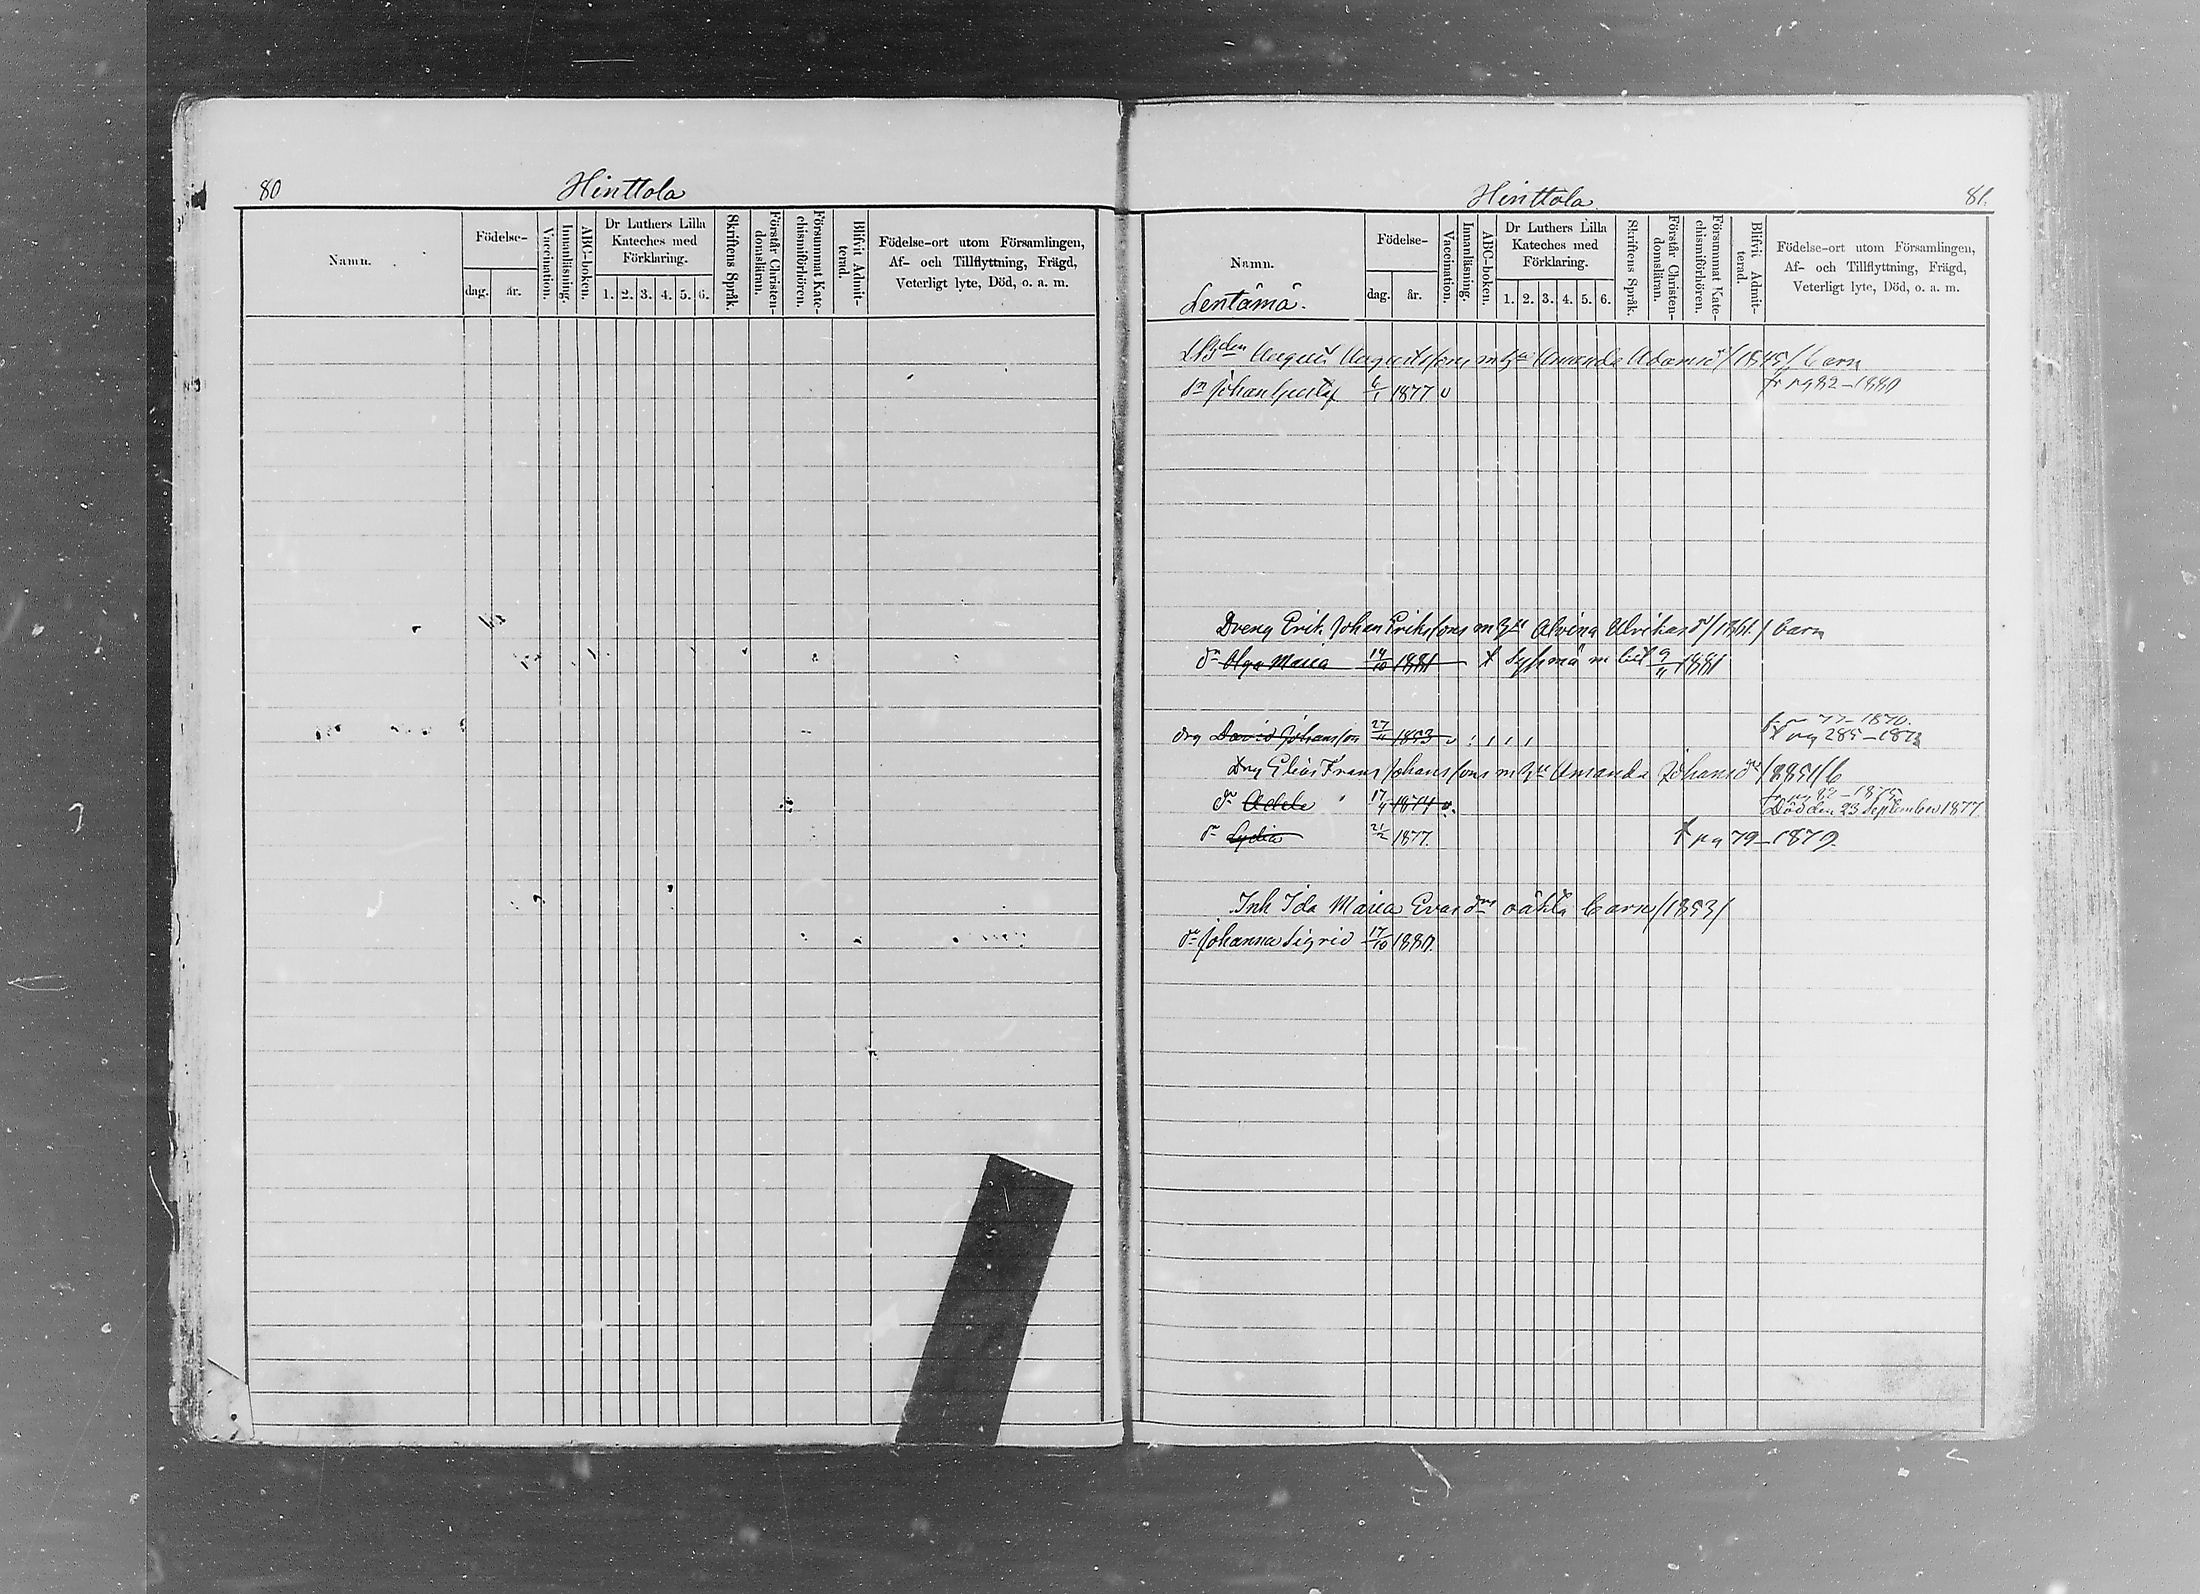 80 Hinttola
Namn.
Födelse-
dag. år.
Vaccination.
Innanläsning.
ABC-boken.
Dr Luthers Lilla Kateches med Förklaring.
1. 2. 3. 4. 5. 6.
Skriftens Språk.
Förstår Christen-domslärnn.
Försummat Kate-chismiförhören.
Blifvit Admit-terad.
Födelse-ort utom Församlingen,
Af- och Tillflyttning, Frägd,
Veterligt lyte, Död, o. a. m.
Hinttola. 81.
Namn.
Lentämä.
Födelse-
dag. år.
Vaccination.
Innanläsning.
ABC-boken.
Dr Luthers Lilla
Kateches med
Förklaring.
1. 2. 3. 4. 5. 6.
Skriftens Språk.
Förstår Christen-domsläran.
Försummat Kate-chismiförhören.
Blifvit Admit-terad.
Födelse-ort utom Församlingen,
Af- och Tillflyttning, Frägd,
Veterligt lyte, Död, o. a. m.
August Augustssons m h Amanda Adamsd /1845/ barn
sn Johan Gustaf 6/1 1877 v fr pg 82–1880
Dreng Erik Johan Erikssons m hu Alvina Ulrikasd /1861/ barn
dr Olga Maria 14/10 1881 Sysmä m bet 9/11 1881
drg David Johansson 27/11 1853 v fr pg 77–1870.
pg 285–1873
Drg Elias Frans Johanssons m hu Amanda Johansd /1851/ b
dr Adele 17/4 1874 v. fr pg 82–1875
Död den 23 September 1877.
dr Lydia 21/2 1877. pg 79–1879.
Inh Ida Maria Evasdrs oäkta barn /1853/
dr Johanna Sigrid 17/10 1880.